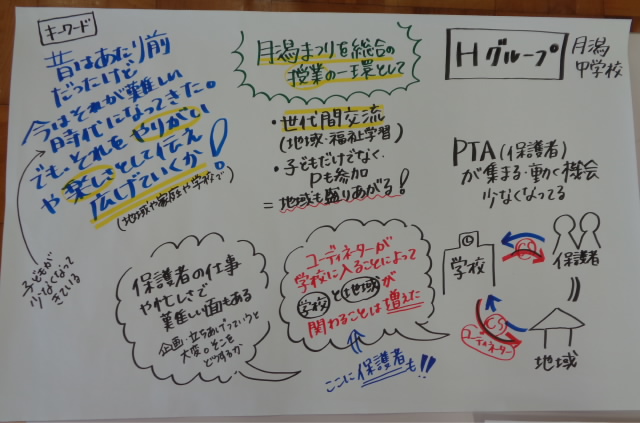 キーワード
昔はあたり前
だったけど
今はそれが難しい
時代になってきた。
でも、それをやりがい
や楽しさとして伝え
広げていくか!
(地域や家庭や学校で)
子どもが
少なくなって
きている
月潟まつりを総合の
授業の一環として
・世代間交流
(地域・福祉学習)
・子どもだけでなく、
Pも参加
=地域も盛りあがる!
Hグループ
月潟
中学校
PTA(保護者)
が集まる・動く機会
少なくなってる
保護者の仕事
や忙しさで
難しい面もある
企画・立ちあげっていうと
大変。そこを
どうするか
コーディネーターが
学校に入ることによって
学校と地域が
関わることは増えた
ここに保護者も!!
学校
CS
保護者
CS
コーディネーター
地域